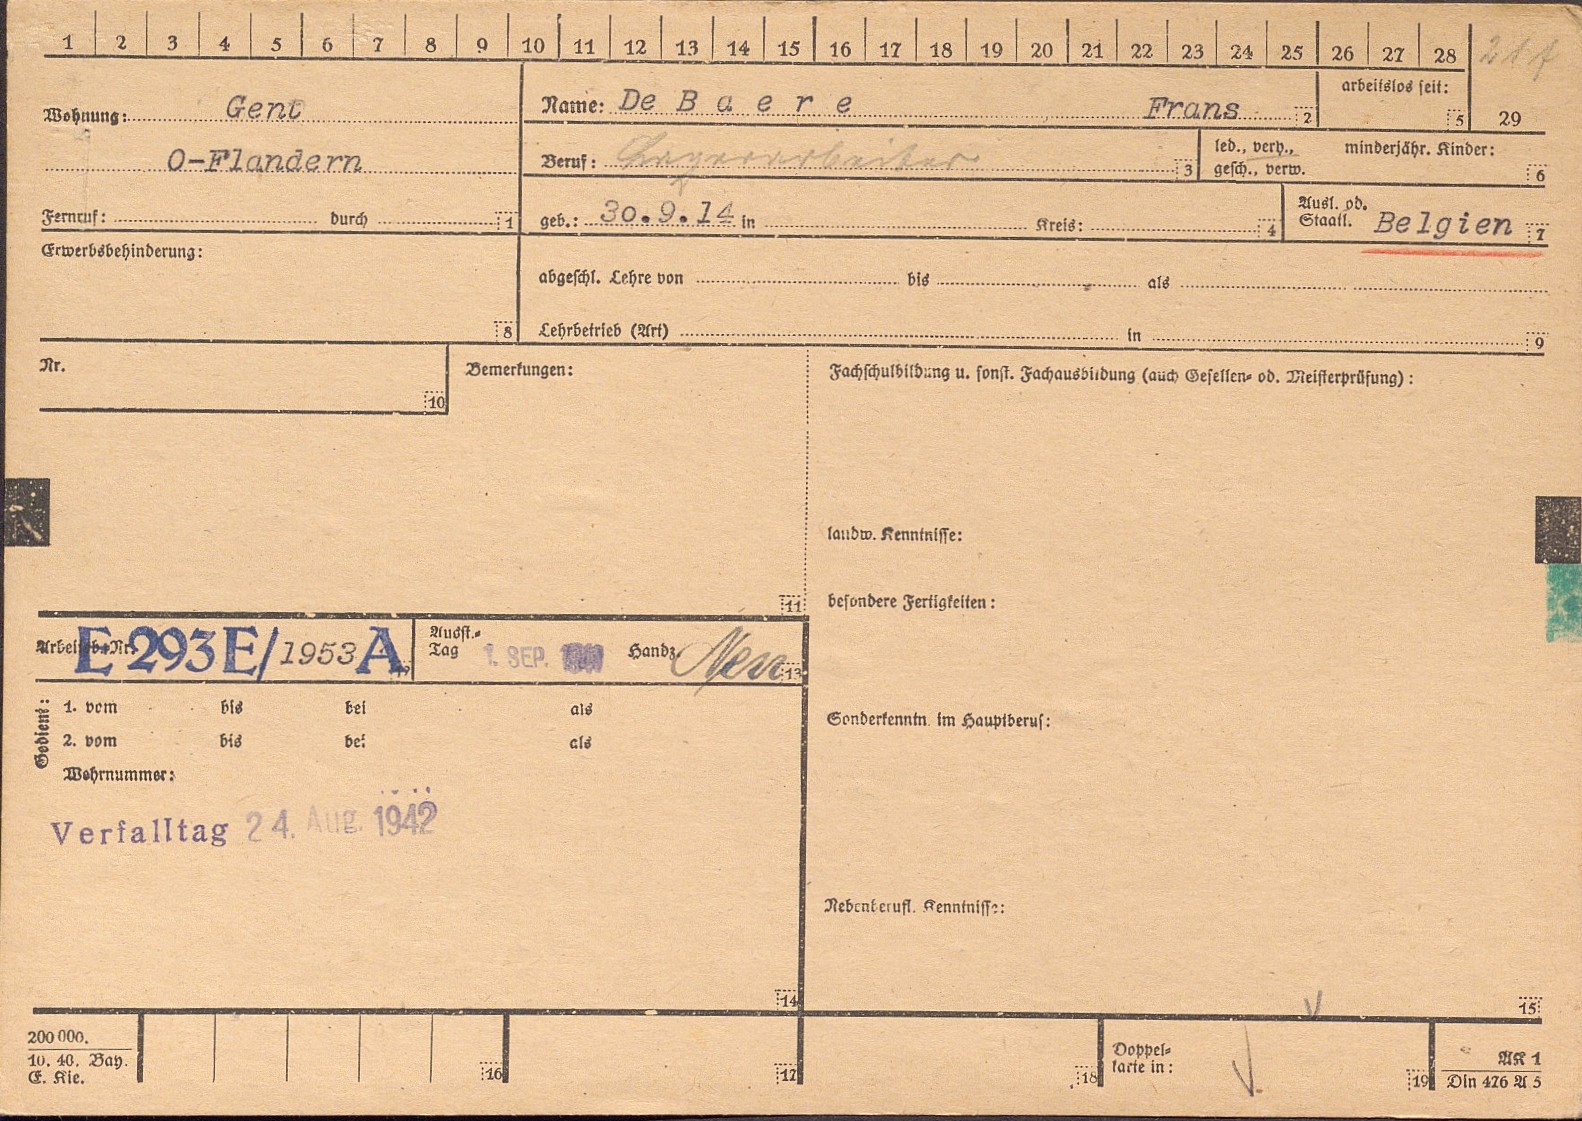 1 2 3 4 5 6 7 8 9 10 11 12 13 14 15 16 17 18 19 20 21 22 23 24 25 26 27 28
Wohnung: Gent
O-Flandern
Fernruf: durch 1
Name: De Baere Frans 2
arbeitslos seit: 5
29
Beruf: Lagerarbeiter 3
led., verh., minderjähr. Kinder:
gesch., verw. 6
geb.: 30.9.14 in Kreis: 4
Ausl. od.
Staatl. Belgien 7
Erwerbsbehinderung:
8
abgeschl. Lehre von bis als
Lehrbetrieb (Art) in 9
Nr.
10
Bemerkungen:
11
Fachschulbildung u. sonst. Fachausbildung (auch Gesellen- od. Meisterprüfung):
landw. Kenntnisse:
besondere Fertigkeiten:
Sonderkenntn. im Hauptberuf:
Nebenberufl. Kenntnisse:
15
Arbeitsb.-Nr. E 293 E/1953 A 12
Ausst.-
Tag 1. SEP. Handz. 13
Gedient:
1. vom bis bei als
2. vom bis bei als
Wehrnummer:
Verfalltag 24. Aug. 1942
14
200 000.
10. 40. Bay.
E. Kie.
16
17
18
Doppel-
karte in:
19
AK 1
Din 476 A 5